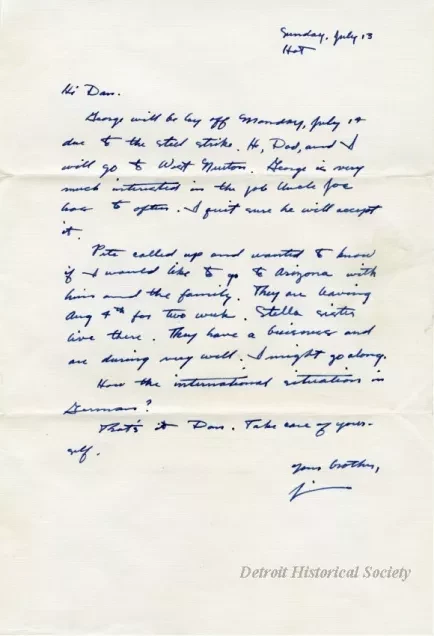 Sunday, July 13
Hot
Hi Dan.
George will be lay off Monday, July 14
due to the steel strike. He, Dad, and I
will go to West Newton. George is very
much interested in the job Uncle Joe
has to offer. I quit sure he will accept
it.
Pete called up and wanted to know
if I would like to go to Arizona with
him and the family. They are leaving
Aug 4th for two week. Stella sister
live there. They have a business and
are during very well. I might go along.
How the international situation in
Germany?
That's it Dan. Take care of your-
self.
Your brother,
Detroit Historical Society